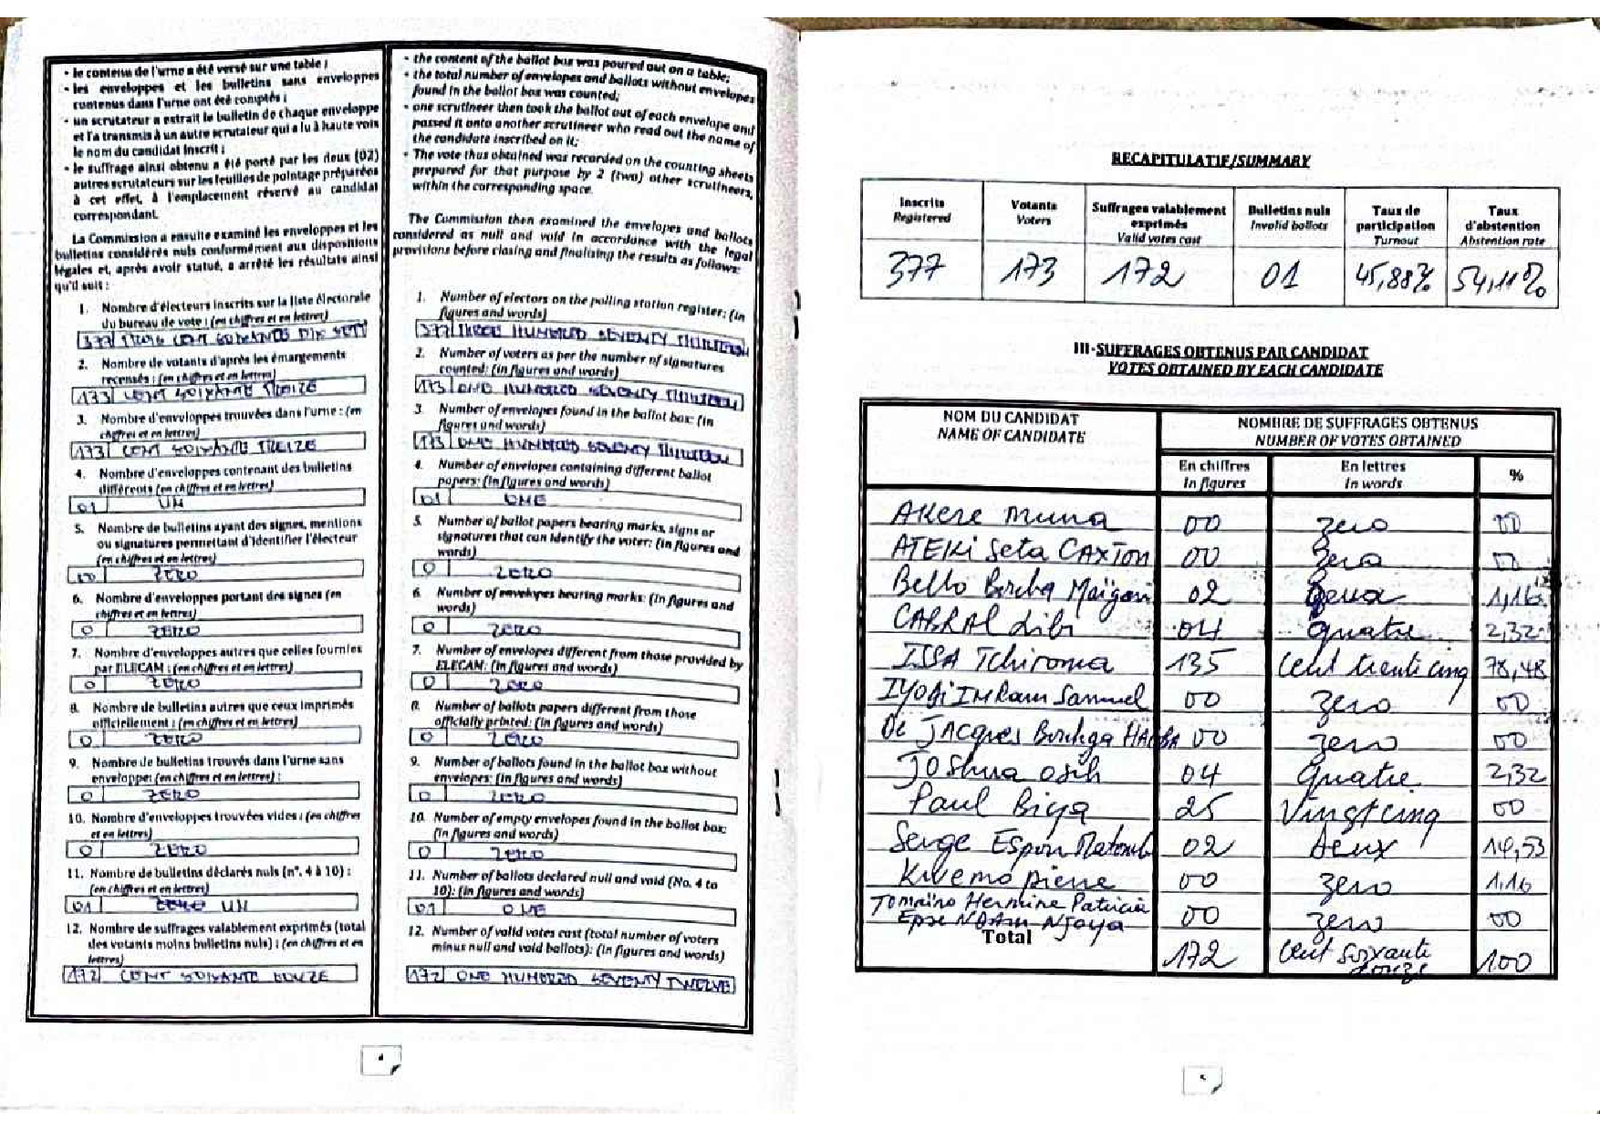 • le contenu de l'urne a été versé sur une table ;
• les enveloppes et les bulletins sans enveloppes
contenus dans l'urne ont été comptés ;
• un scrutateur a extrait le bulletin de chaque enveloppe
et l'a transmis à un autre scrutateur qui a lu à haute voix
le nom du candidat inscrit ;
• le suffrage ainsi obtenu a été porté par les deux (02)
autres scrutateurs sur les feuilles de pointage préparées
à cet effet, à l'emplacement réservé au candidat
correspondant.
La Commission a ensuite examiné les enveloppes et les
bulletins considérés nuls conformément aux dispositions
légales et, après avoir statué, a arrêté les résultats ainsi
qu'il suit :
1. Nombre d'électeurs inscrits sur la liste électorale
du bureau de vote : (en chiffre et en lettres)
377 TROIS CENT SOIXANTE DIX SEPT
2. Nombre de votants d'après les émargements
recensés : (en chiffres et en lettres)
173 CENT SOIXANTE TREIZE
3. Nombre d'enveloppes trouvées dans l'urne : (en
chiffres et en lettres)
173 CENT SOIXANTE TREIZE
4. Nombre d'enveloppes contenant des bulletins
différents (en chiffres et en lettres)
01 UN
5. Nombre de bulletins ayant des signes, mentions
ou signatures permettant d'identifier l'électeur
(en chiffres et en lettres)
ZERO
6. Nombre d'enveloppes portant des signes (en
chiffres et en lettres)
0 ZERO
7. Nombre d'enveloppes autres que celles fournies
par ELECAM : (en chiffres et en lettres)
0 ZERO
8. Nombre de bulletins autres que ceux imprimés
officiellement : (en chiffres et en lettres)
0 ZERO
9. Nombre de bulletins trouvés dans l'urne sans
enveloppe: (en chiffres et en lettres) :
0 ZERO
10. Nombre d'enveloppes trouvées vides : (en chiffres
et en lettres)
0 ZERO
11. Nombre de bulletins déclarés nuls (n°. 4 à 10) :
(en chiffres et en lettres)
01 ZERO UN
12. Nombre de suffrages valablement exprimés (total
des votants moins bulletins nuls) : (en chiffres et en
lettres)
172 CENT SOIXANTE DOUZE
4
• the content of the ballot box was poured out on a table;
• the total number of envelopes and ballots without envelopes
found in the ballot box was counted;
• one scrutineer then took the ballot out of each envelope and
passed it onto another scrutineer who read out the name of
the candidate inscribed on it;
• The vote thus obtained was recorded on the counting sheets
prepared for that purpose by 2 (two) other scrutineers,
within the corresponding space.
The Commission then examined the envelopes and ballots
considered as null and void in accordance with the legal
provisions before closing and finalising the results as follows:
1. Number of electors on the polling station register: (in
figures and words)
377 THREE HUNDRED SEVENTY THIRTEEN
2. Number of voters as per the number of signatures
counted: (in figures and words)
173 ONE HUNDRED SEVENTY THIRTEEN
3. Number of envelopes found in the ballot box: (in
figures and words)
173 ONE HUNDRED SEVENTY THIRTEEN
4. Number of envelopes containing different ballot
papers: (in figures and words)
01 ONE
5. Number of ballot papers bearing marks, signs or
signatures that can identify the voter: (in figures and
words)
0 ZERO
6. Number of envelopes bearing marks: (in figures and
words)
0 ZERO
7. Number of envelopes different from those provided by
ELECAM: (in figures and words)
0 ZERO
8. Number of ballots papers different from those
officially printed: (in figures and words)
0 ZERO
9. Number of ballots found in the ballot box without
envelopes: (in figures and words)
0 ZERO
10. Number of empty envelopes found in the ballot box:
(in figures and words)
0 ZERO
11. Number of ballots declared null and void (No. 4 to
10): (in figures and words)
01 ONE
12. Number of valid votes cast (total number of voters
minus null and void ballots): (in figures and words)
172 ONE HUNDRED SEVENTY TWELVE
RECAPITULATIF/SUMMARY
Inscrits Registered
Votants Voters
Suffrages valablement exprimés Valid votes cast
Bulletins nuls Invalid ballots
Taux de participation Turnout
Taux d'abstention Abstention rate
377 173 172 01 45,88% 54,11%
III-SUFFRAGES OBTENUS PAR CANDIDAT
VOTES OBTAINED BY EACH CANDIDATE
NOM DU CANDIDAT NOMBRE DE SUFFRAGES OBTENUS
NAME OF CANDIDATE NUMBER OF VOTES OBTAINED
En chiffres En lettres %
In figures In words
Akere Muna 00 zero 00
ATEKI Seta CAXTON 00 zero 00
Bello Bouba Maïgari 02 1,16
CABRAL Libi 04 quatre 2,32
ISSA Tchiroma 135 Cent trente cinq 78,48
IYODI Hiram Samuel 00 zero 00
De JACQUES Bouhga HAGBE 00 zero 00
Joshua Osih 04 quatre 2,32
Paul Biya 25 Vingt cinq 00
Serge Espoir Matomba 02 deux 14,53
Kwemo pierre 00 zero 1,16
Tomaïno Hermine Patricia
Epse NDAM Njoya 00 zero 00
Total 172 Cent Soixante douze 100
5